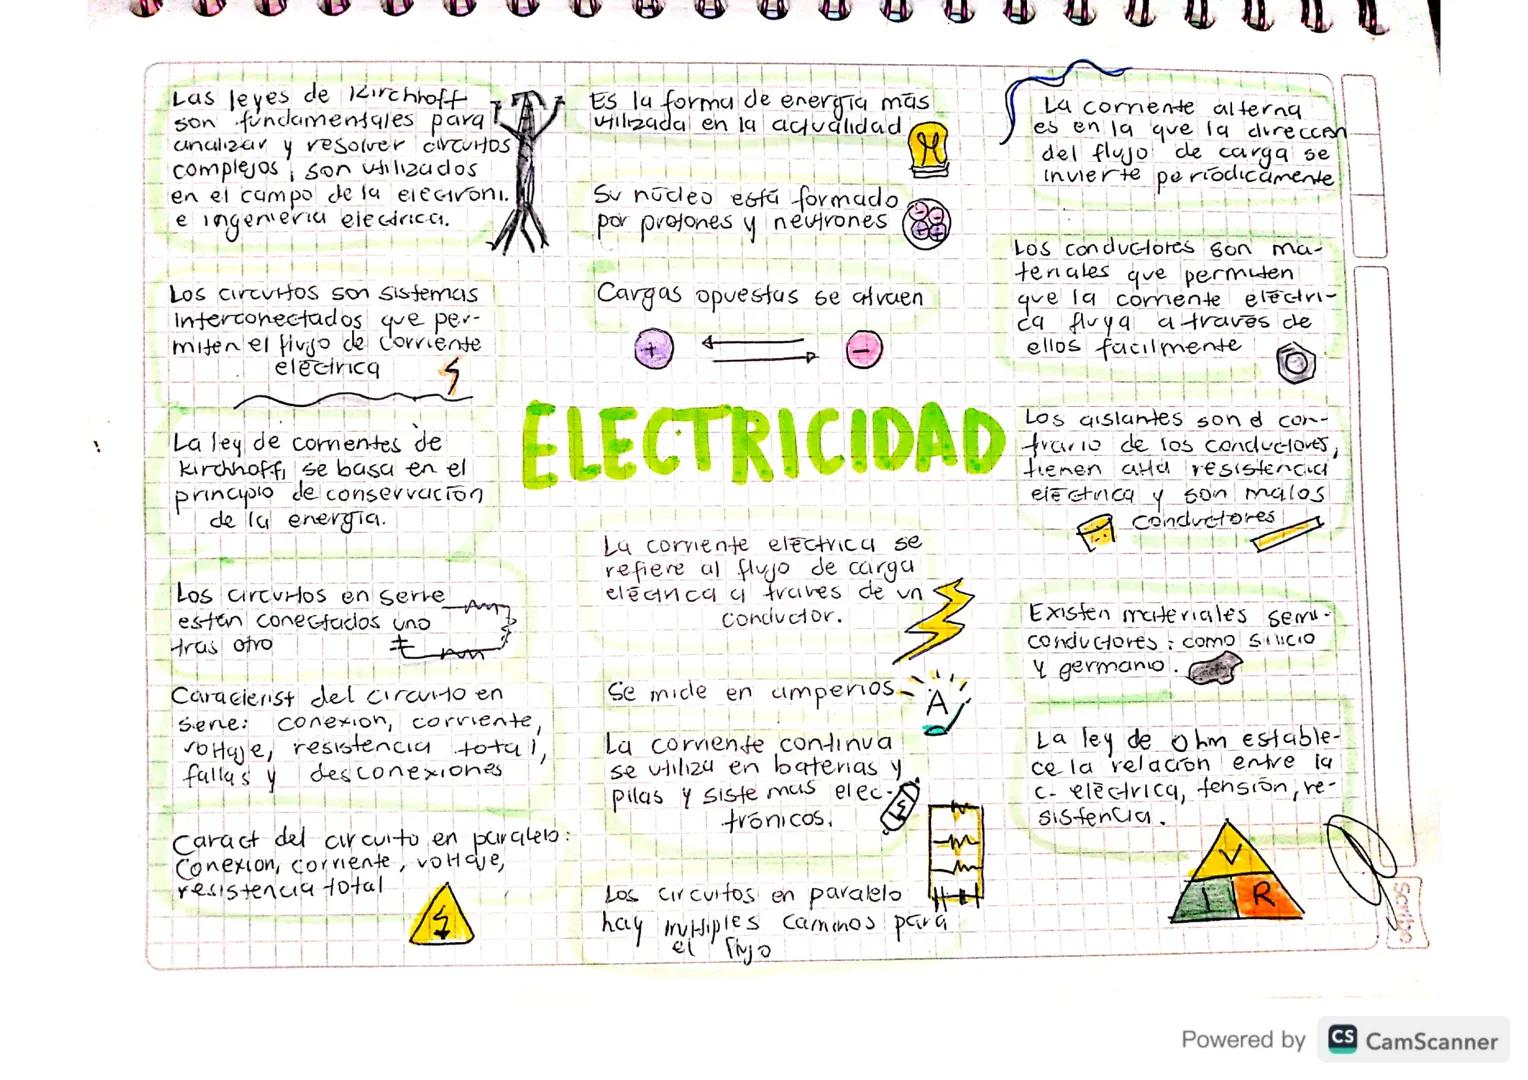 Las leyes de Kirchhoff
son fundamentales para
analizar y resolver circuitos
complejos, son utilizados
en el campo de la electróni.
e ingenieria eléctrica.
Los circuitos son sistemas
interconectados que per-
miten el flujo de corriente
eléctrica
La ley de corrientes de
Kirchhoff, se basa en el
principio de conservación
de la energía.
Los circuitos en serie
están conectados uno
tras otro
Caracterist del circuito en
serie: conexion, corriente,
voltaje, resistencia total,
fallas y desconexiones
Caract del circuito en paralelo:
Conexion, corriente, voltaje,
resistencia total
Es la forma de energía más
utilizada en la actualidad
Su núcleo está formado
por protones y neutrones
Cargas opuestas se atraen
+
-
ELECTRICIDAD
La corriente eléctrica se
refiere al flujo de carga
eléctrica a traves de un
conductor.
Se mide en amperios
A
La corriente continua
se utiliza en baterias y
pilas y sistemas elec-
trónicos.
Los circuitos en paralelo
hay multiples caminos para
el flujo
La corriente alterna
es en la que la dirección
del flujo de carga se
invierte periódicamente
Los conductores son ma-
teriales que permiten
que la corriente eléctri-
ca fluya a través de
ellos facilmente
Los aislantes son el con-
trario de los conductores,
tienen alta resistencia
eléctrica y son malos
conductores
Existen materiales semi-
conductores: como silicio
y germanio.
La ley de Ohm estable-
ce la relación entre la
c. eléctrica, tensión, re-
sistencia.
V
I R
Scribe
Powered by CS CamScanner